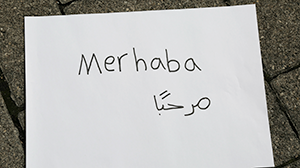 Merhaba
مرحبًا